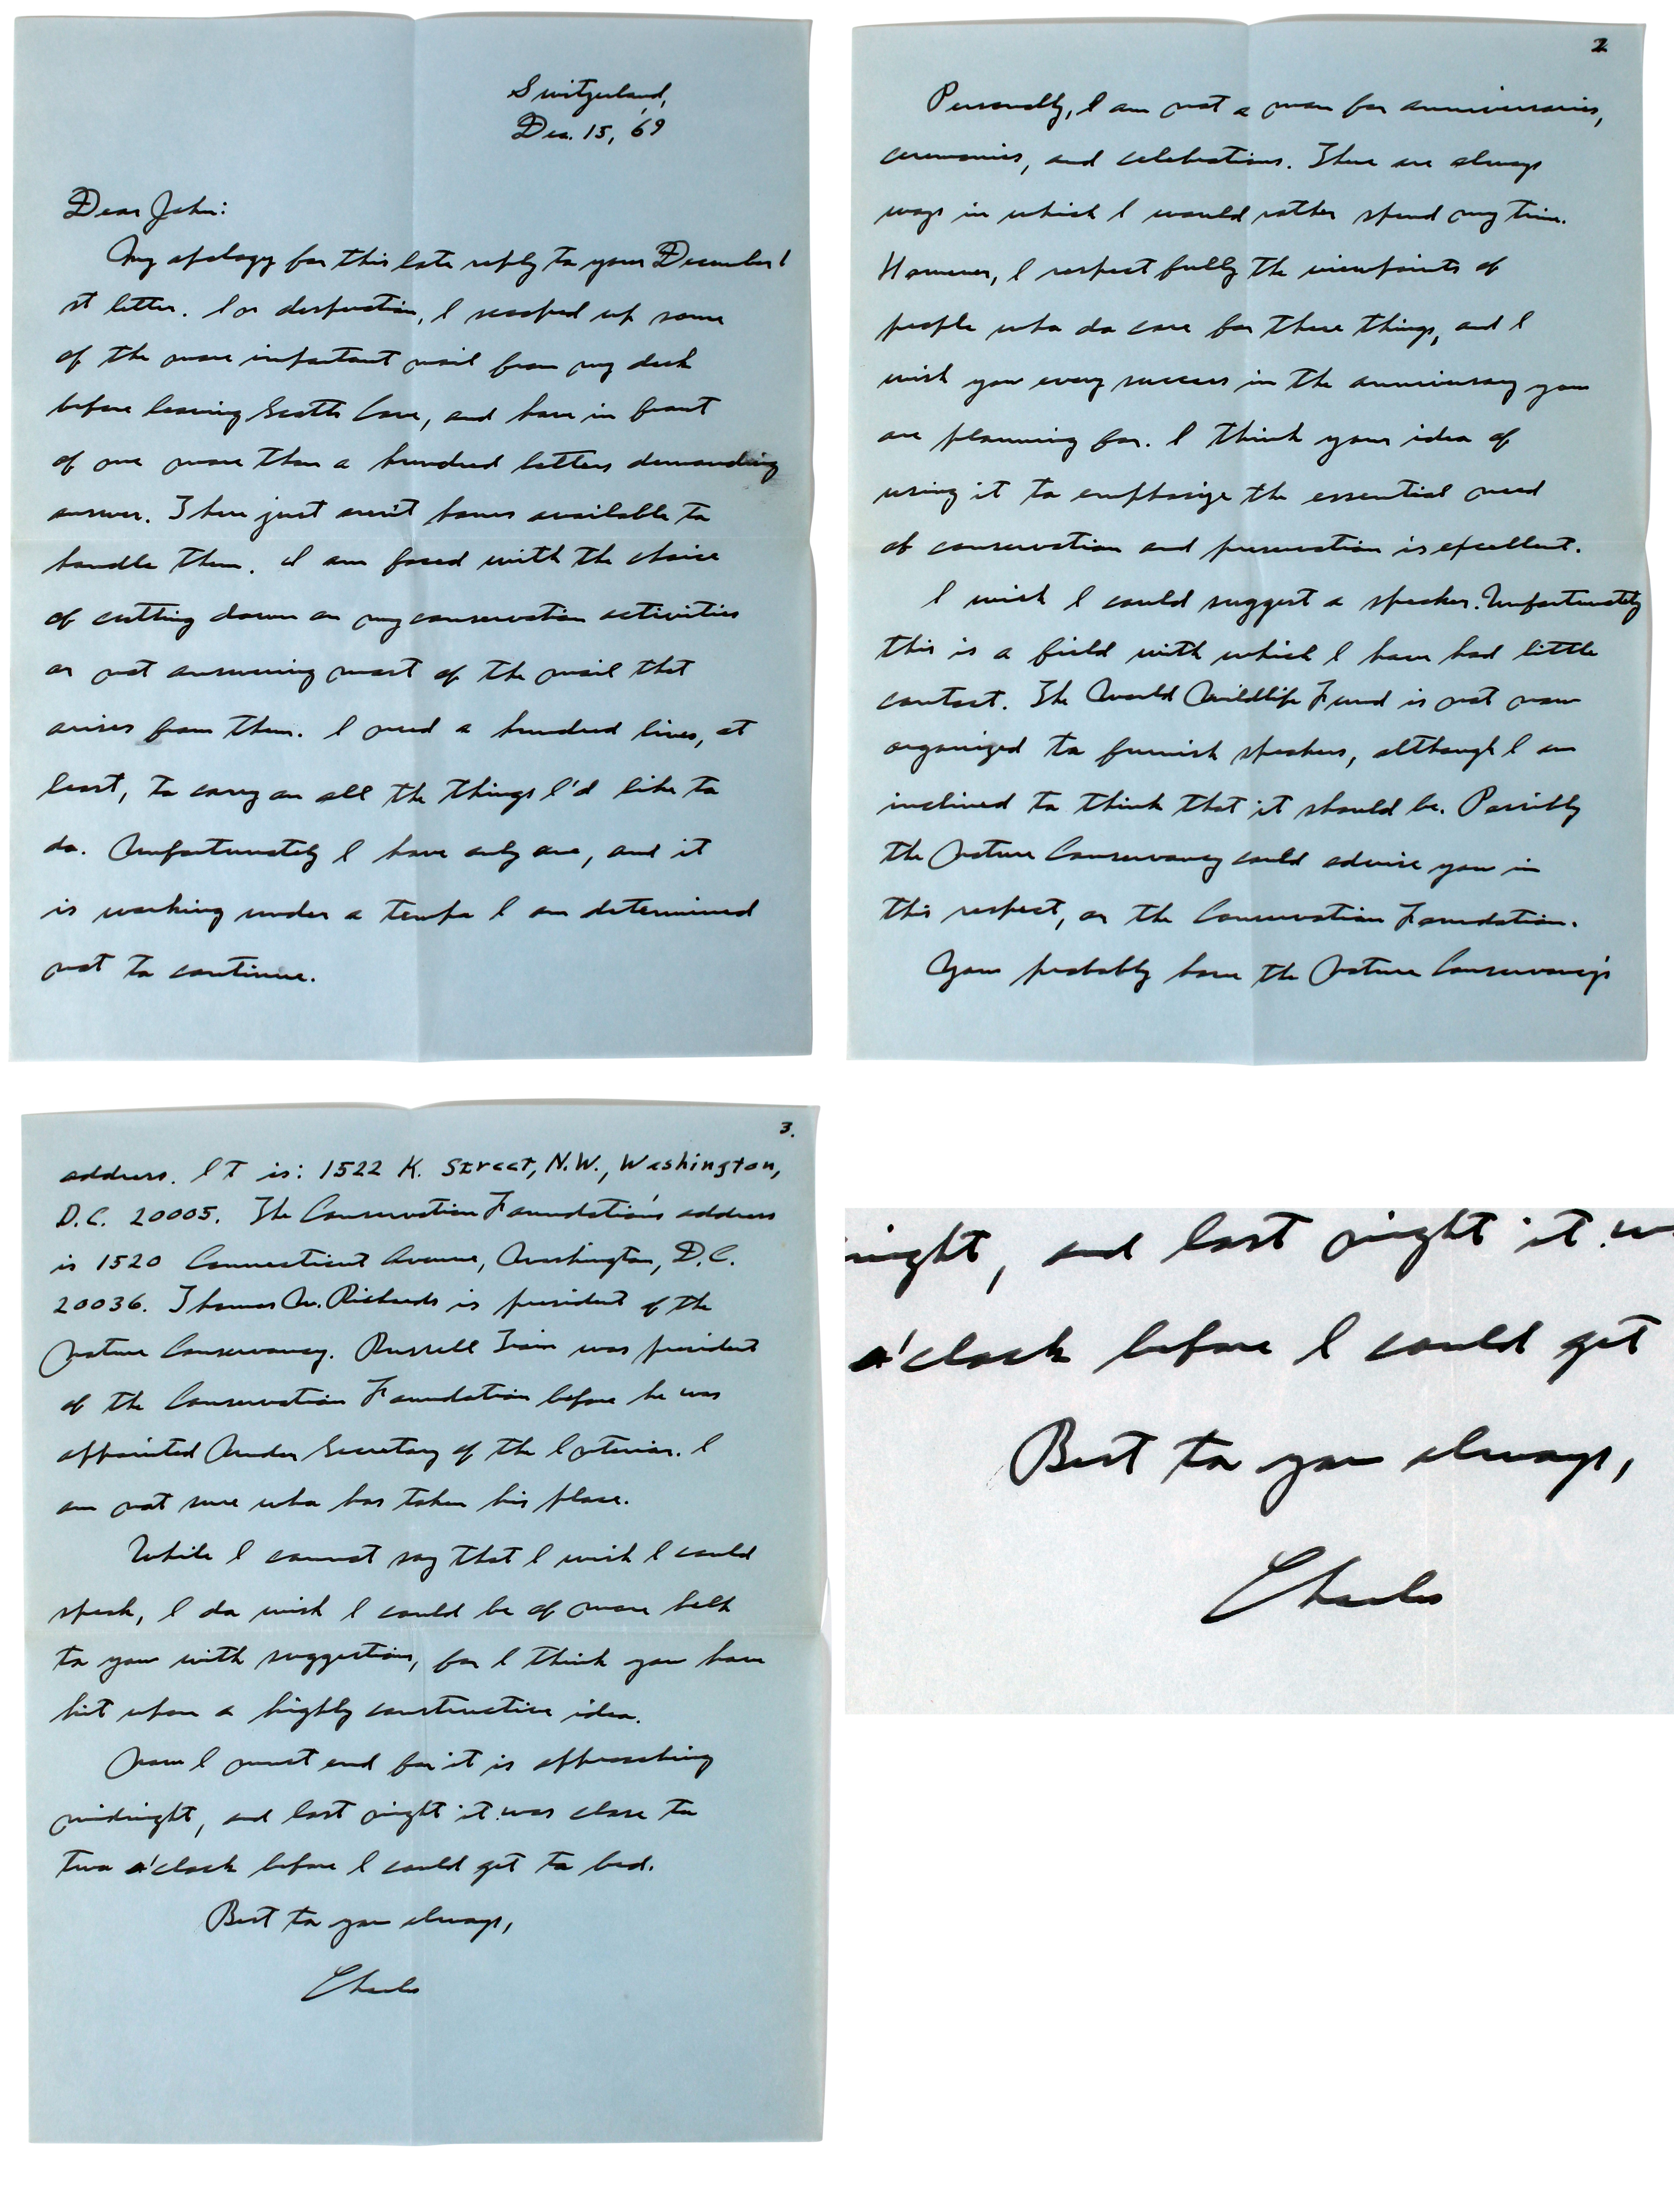 Switzerland,
Dec. 15, '69
Dear John:
My apology for this late reply to your December 1
st letter. In desperation, I scooped up some
of the more important mail from my desk
before leaving Scotts Cove, and have in front
of me more than a hundred letters demanding
answer. There just aren't hours available to
handle them. I am faced with the choice
of cutting down on my conservation activities
or not answering most of the mail that
arises from them. I need a hundred lives, at
least, to carry on all the things I'd like to
do. Unfortunately I have only one, and it
is working under a tempo I am determined
not to continue.
2
Personally, I am not a man for anniversaries,
ceremonies, and celebrations. There are always
ways in which I would rather spend my time.
However, I respect fully the viewpoints of
people who do care for these things, and I
wish you every success in the anniversary you
are planning for. I think your idea of
using it to emphasize the essential need
of conservation and preservation is excellent.
I wish I could suggest a speaker. Unfortunately
this is a field with which I have had little
contact. The World Wildlife Fund is not now
organized to furnish speakers, although I am
inclined to think that it should be. Possibly
the Nature Conservancy could advise you in
this respect, or the Conservation Foundation.
You probably have the Nature Conservancy's
3.
address. It is: 1522 K. Street, N.W., Washington,
D.C. 20005. The Conservation Foundation's address
is 1520 Connecticut Avenue, Washington, D.C.
20036. Thomas W. Richards is president of the
Nature Conservancy. Russell Train was president
of the Conservation Foundation before he was
appointed Under Secretary of the Interior. I
am not sure who has taken his place.
While I cannot say that I wish I could
speak, I do wish I could be of more help
to you with suggestions, for I think you have
hit upon a highly constructive idea.
Now I must end for it is approaching
midnight, and last night it was close to
two o'clock before I could get to bed.
Best to you always,
Charles
night, and last night it w
o'clock before I could get
Best to you always,
Charles